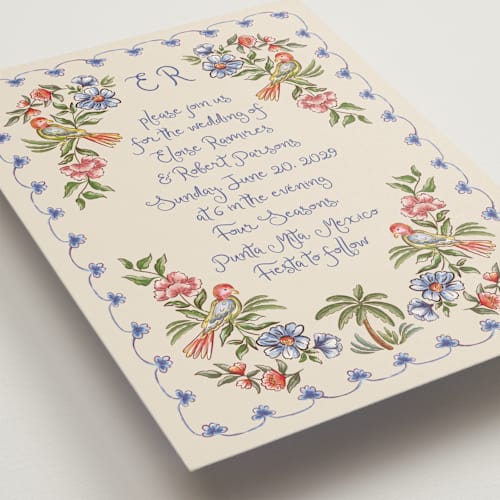 E R
please join us
for the wedding of
Eloise Ramires
& Robert Parsons
Sunday, June 20, 2029
at 6 in the evening
Four Seasons
Punta Mita Mexico
Fiesta to follow